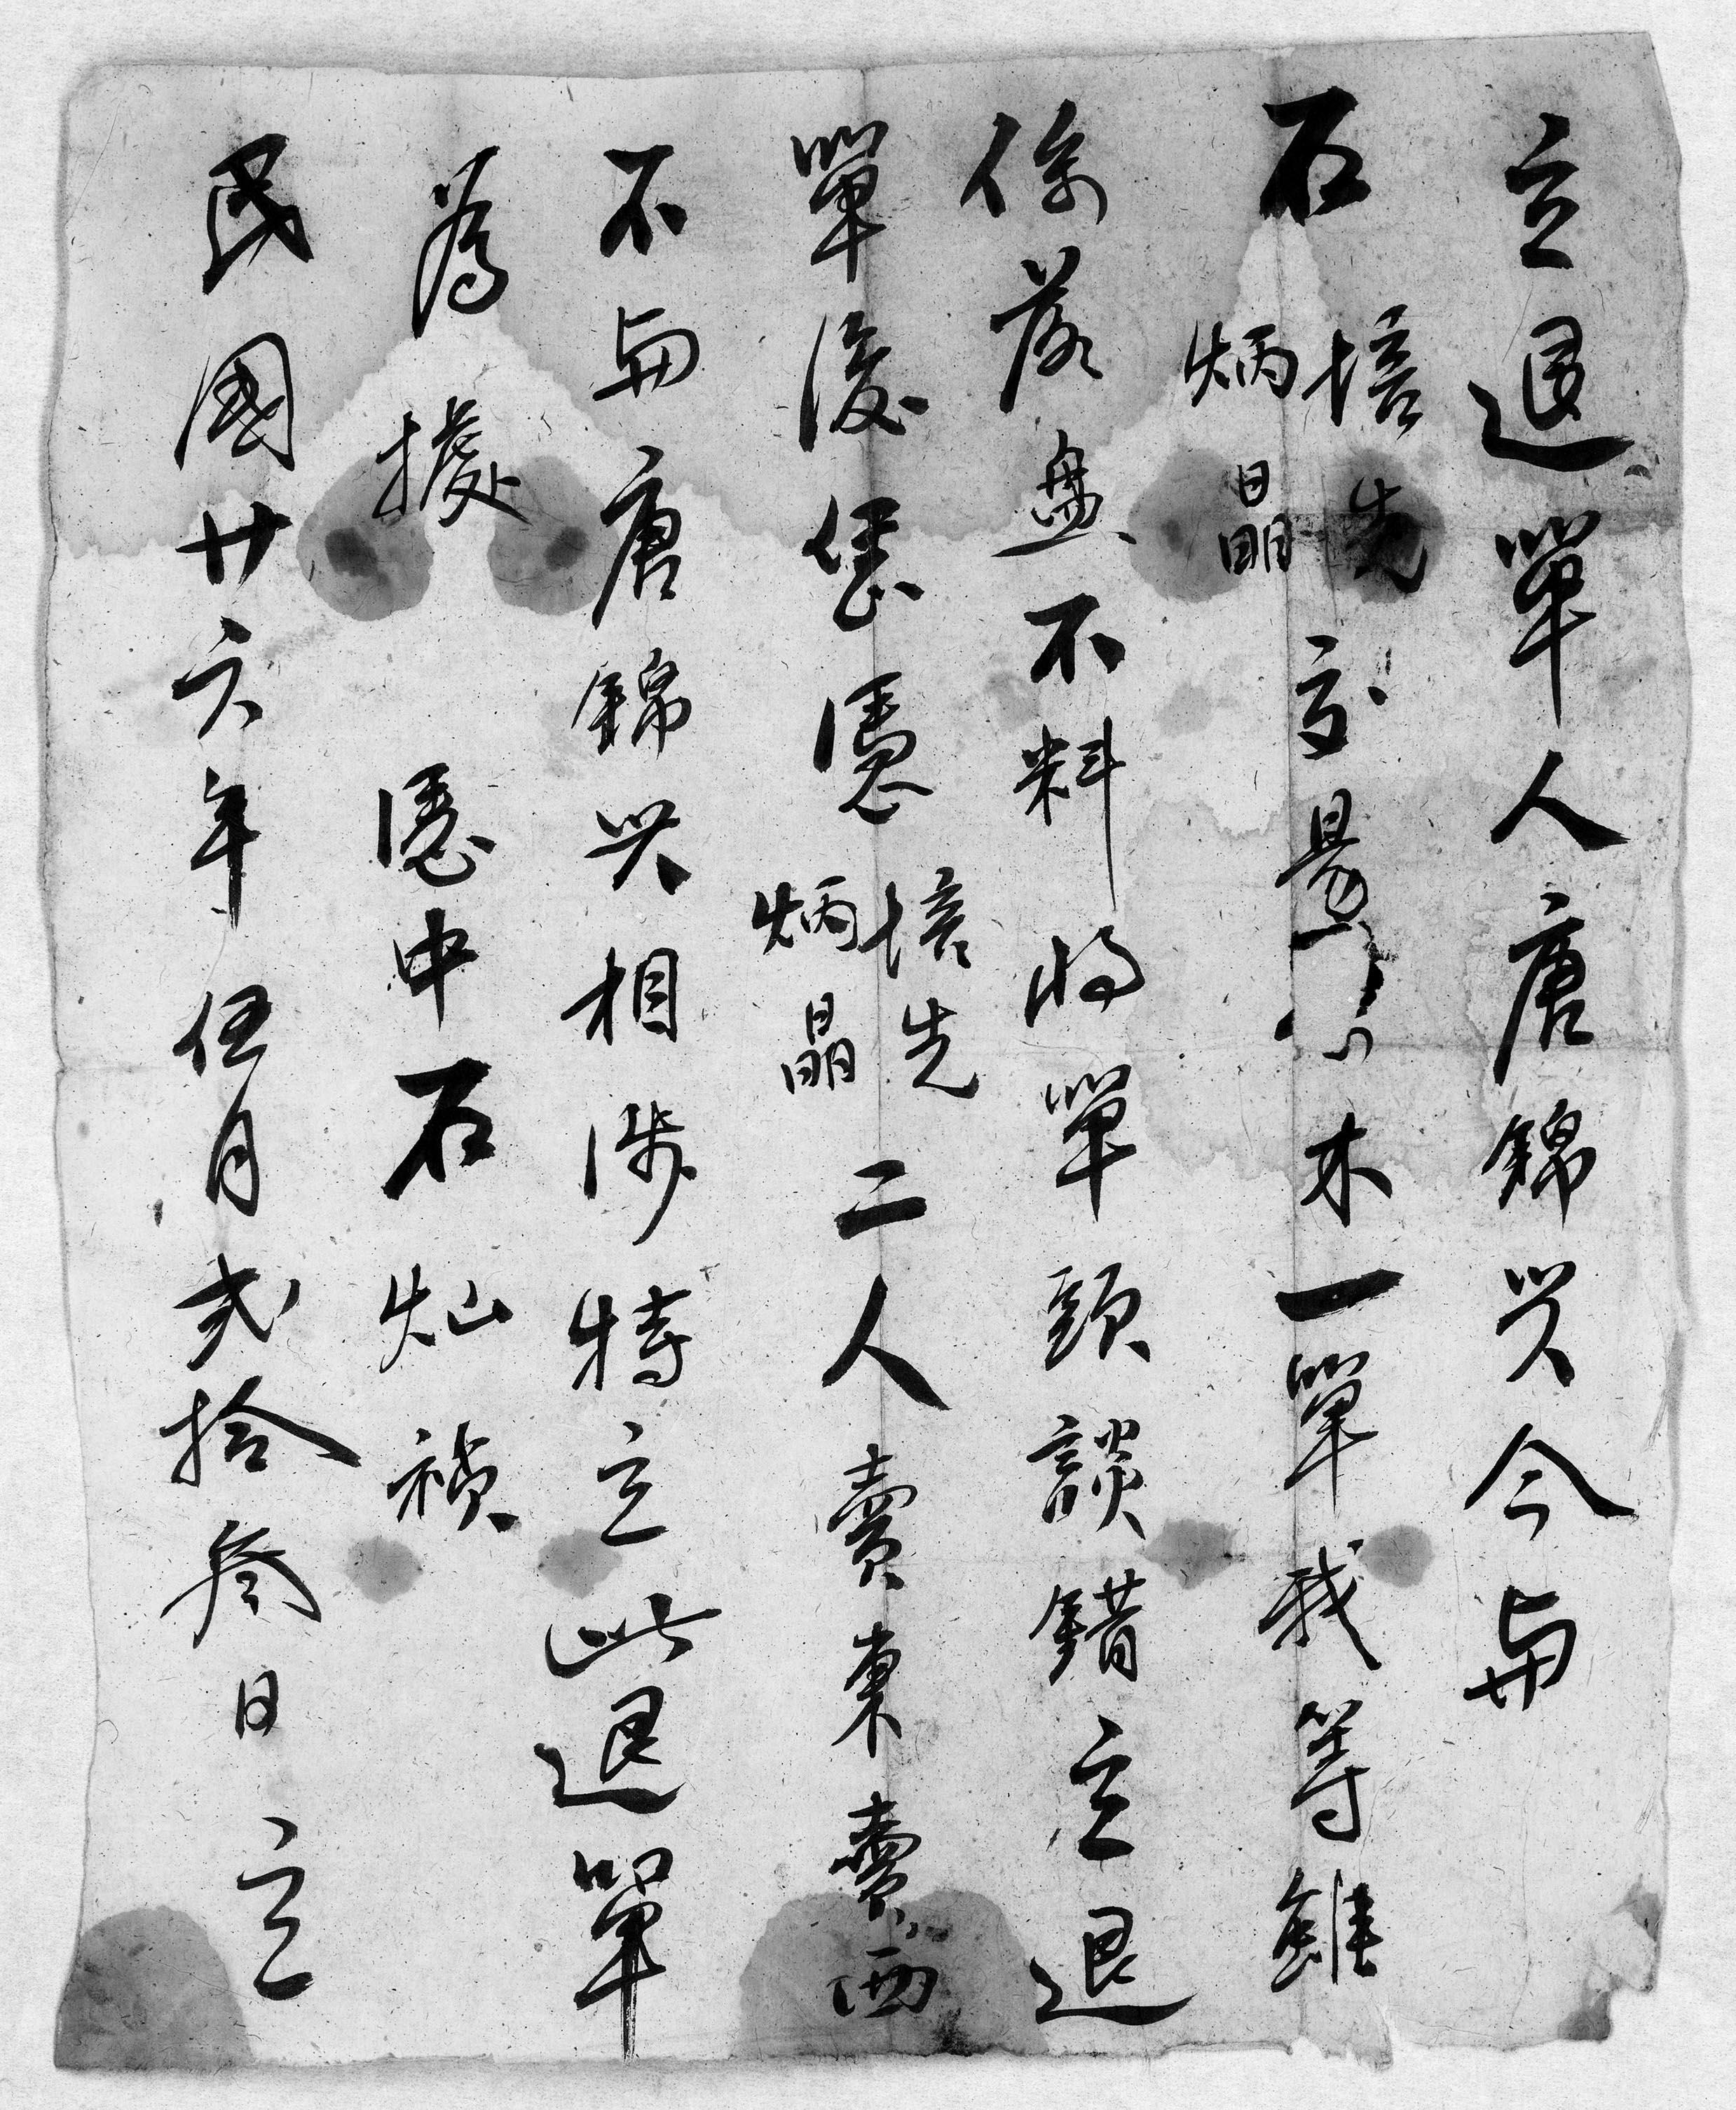 立退單人唐錦兴今與
石培先炳晶交易木一單我等雖
係落盘不料將單頭談錯立退
單後任憑培先炳晶二人賣東賣西
不與唐錦兴相涉特立此退單
為據 憑中石灿禎
民國廿六年伍月弍拾叁日立